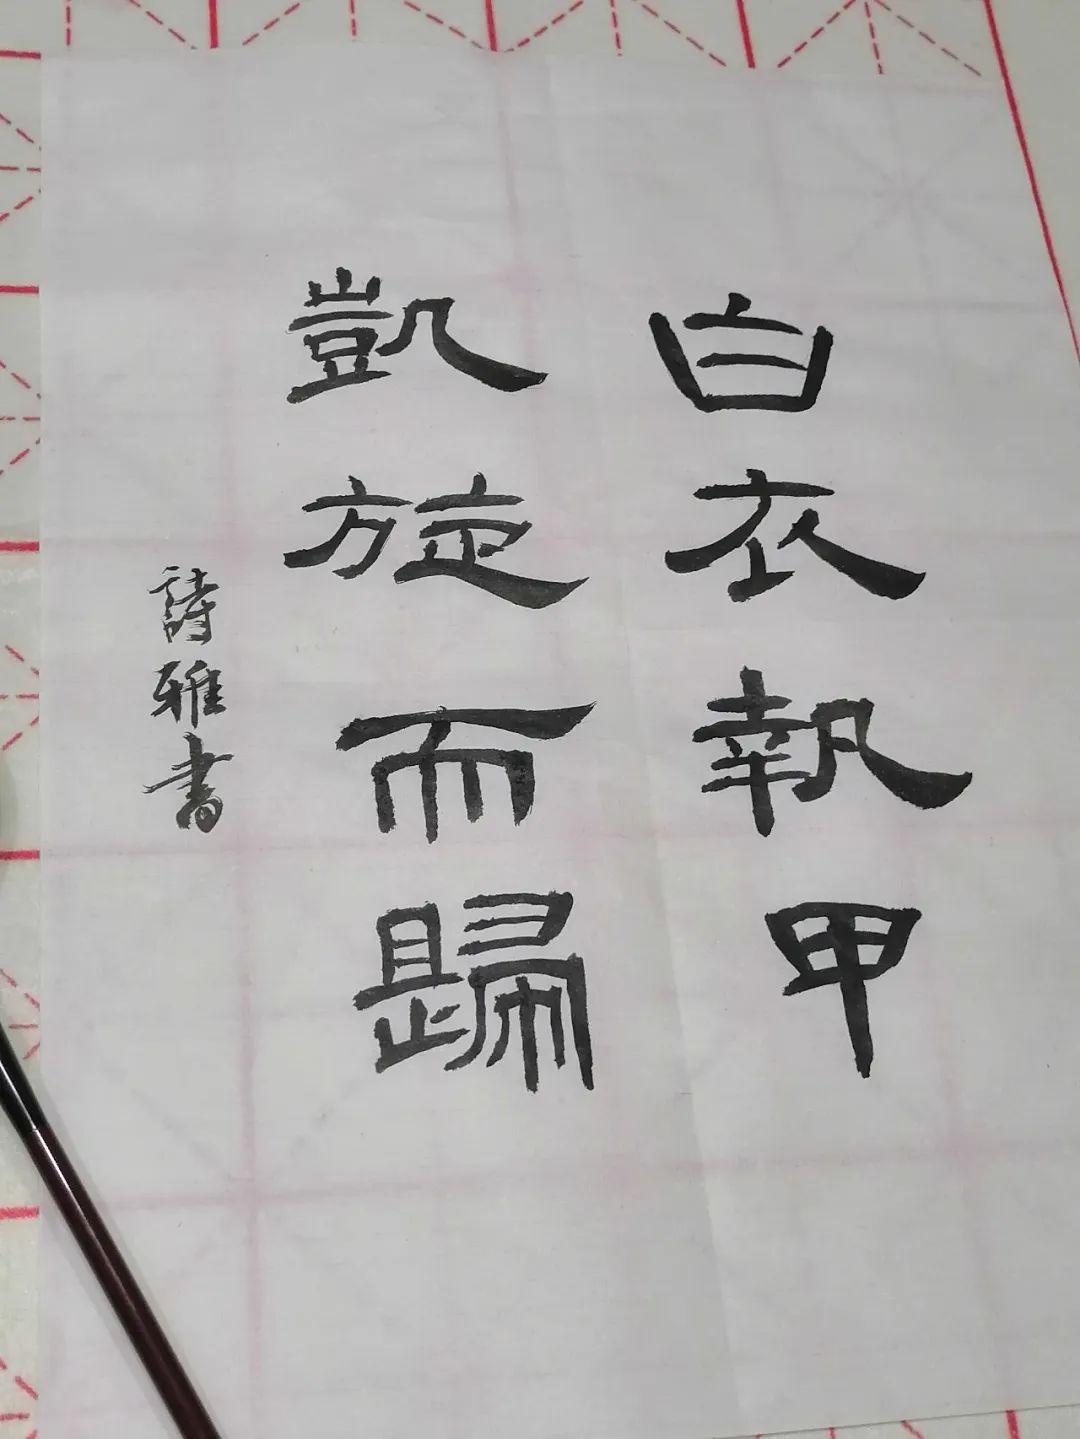 白衣執甲
凱旋而歸
詩雅書